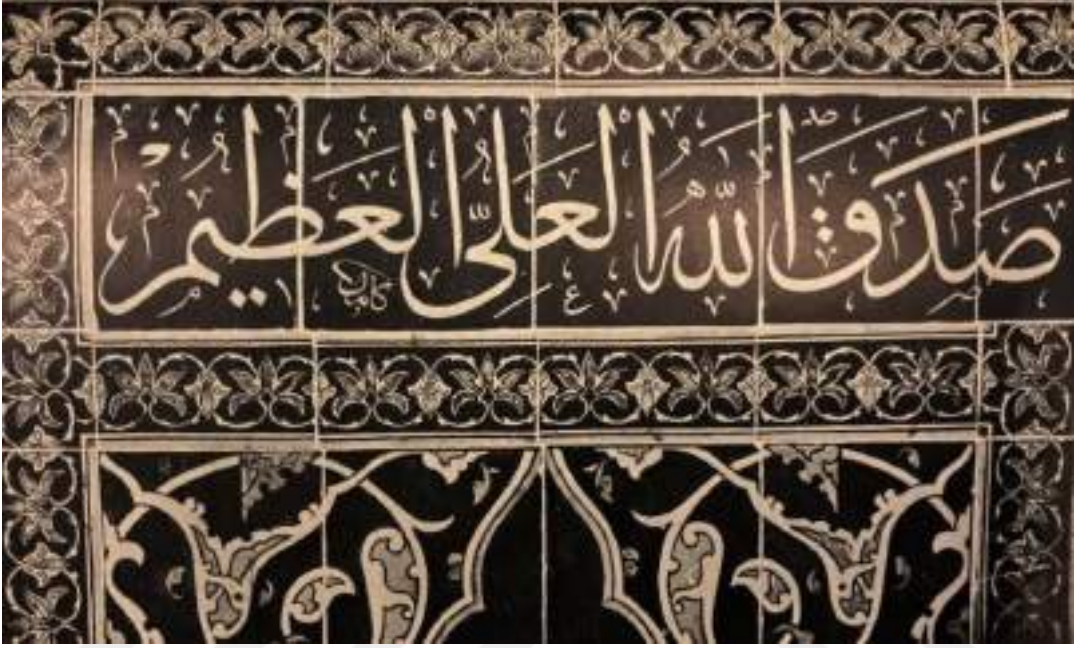 صَدَقَ اللّٰهُ العَلِيُّ العَظِيمْ